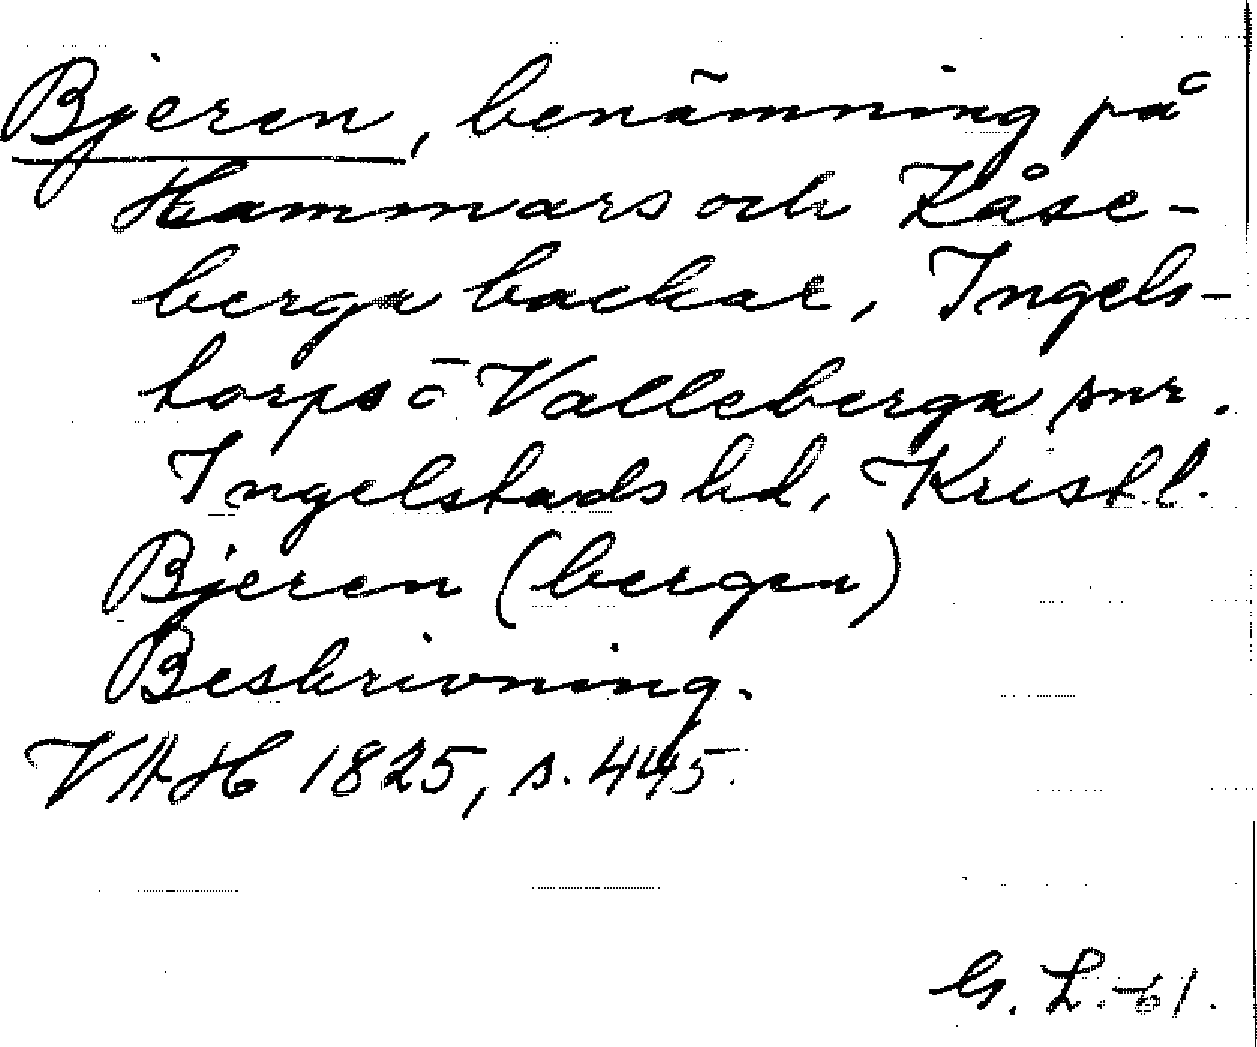 Bjeren, benämning på
Hammars och Kåse-
berga backar, Ingels-
torps o Valleberga snr.
Ingelstads hd, Kristl.
Bjeren (bergen)
Beskrivning.
VAH 1825, s. 445.
G. L. -61.